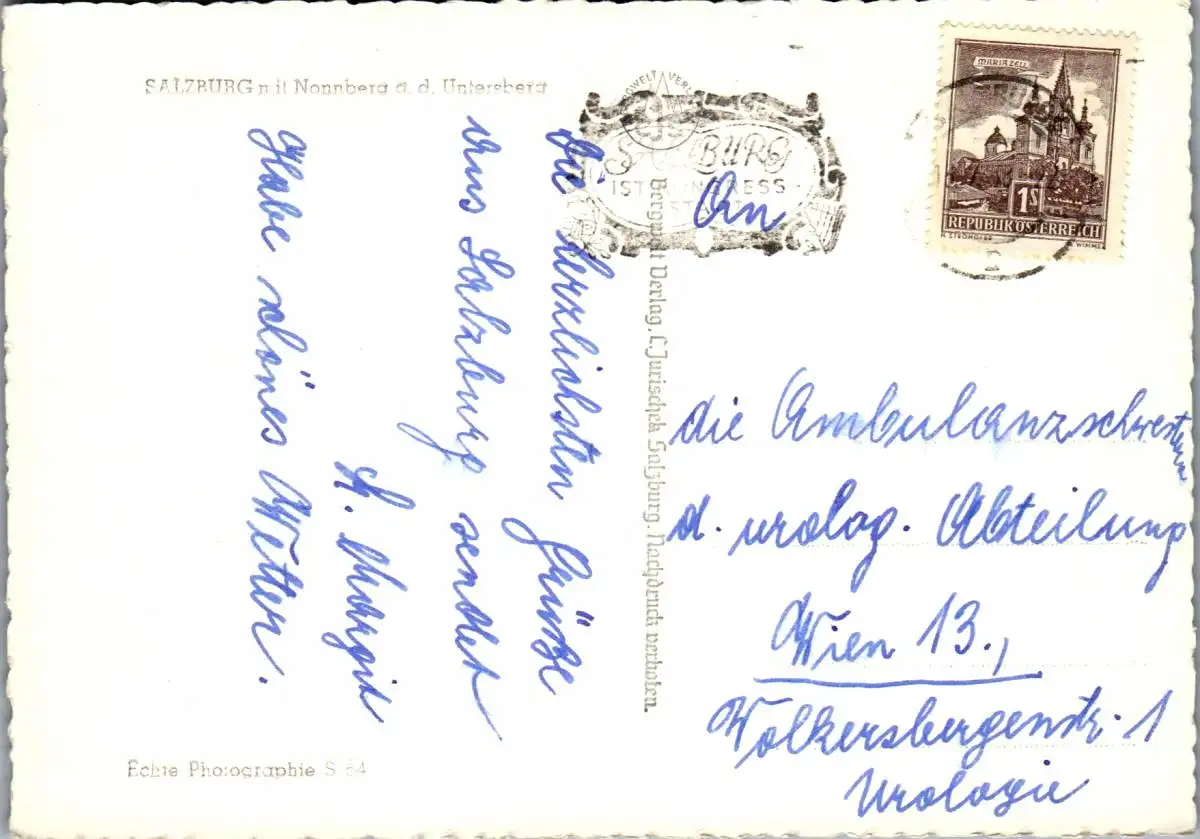 SALZBURG mit Nonnberg a. d. Untersberg
Die herzlichsten Grüße
aus Salzburg sendet
Sr. Margit
Habe schönes Wetter.
Echte Photographie S 84
Bergwelt Verlag, C. Jurischek Salzburg. Nachdruck verboten.
SALZBURG
IST KONGRESS-
STADT
MARIAZELL
1S
REPUBLIK ÖSTERREICH
An
die Ambulanzschwestern
d. urolog. Abteilung
Wien 13.,
Wolkersbergenstr. 1
Urologie